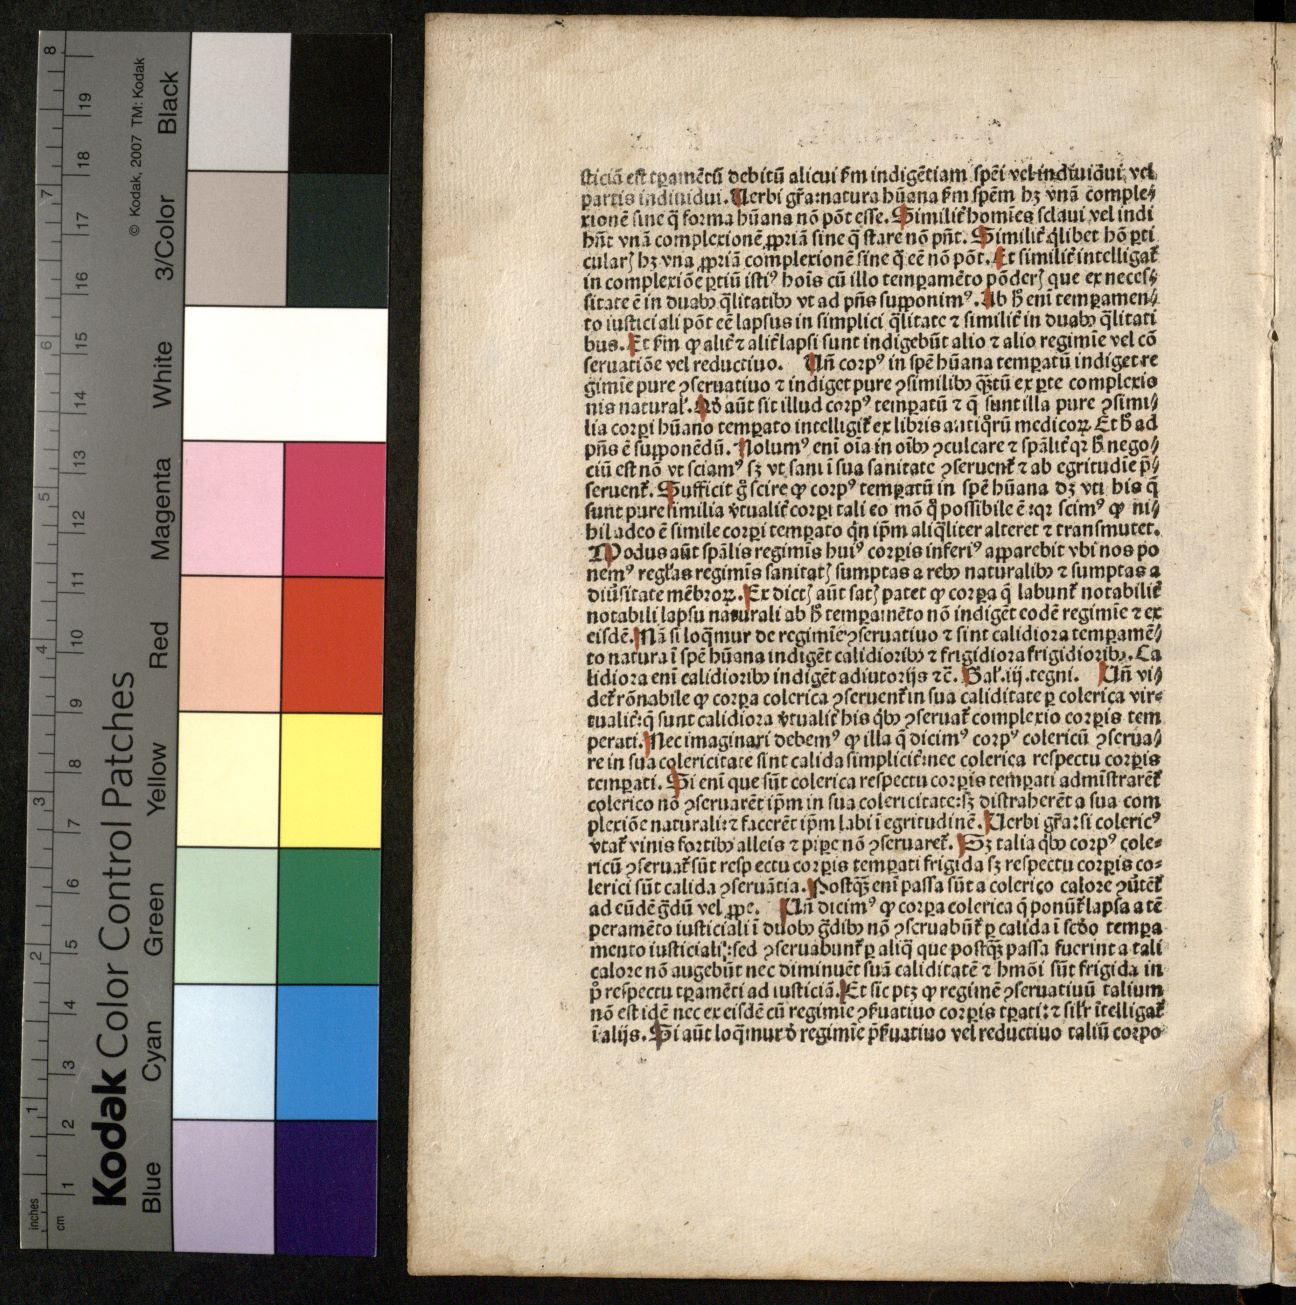 sticiā est tꝑamētū debitū alicui ẜm indigētiam spēi vel indiuidui vel
partis indiuidui. Uerbi gr̄a: natura hūana ẜm spēm hꝫ vnā comple⸗
xionē sine q̄ forma hūana nō pōt esse. Similit̄ homīes sclaui vel indi
hn̄t vnā complexionē ꝓpriā sine q̄ stare nō pn̄t. Similit̄ q̄libet hō ꝑti
cularꝭ hꝫ vna ꝓpriā complexionē sine q̄ eē nō pōt. Et similit̄ intelligat̄
in complexiōe ꝑtiū istiꝰ hoīs cū illo temꝑamēto pōderꝭ que ex neces⸗
sitate ē in duabꝰ q̄litatibꝰ vt ad pn̄s supponimꝰ. Ab h̄ eni temꝑamen⸗
to iusticiali pōt eē lapsus in simplici q̄litate ⁊ similit̄ in duabꝰ q̄litati
bus. Et ẜm ꝙ alit̄ ⁊ alit̄ lapsi sunt indigebūt alio ⁊ alio regimīe vel cō
seruatiōe vel reductiuo. Un̄ corpꝰ in spē hūana temꝑatū indiget re
gimīe pure ꝯseruatiuo ⁊ indiget pure ꝯsimilibꝰ q̄ꝫtū ex ꝑte complexio
nis natural̕. Qd̄ aūt sit illud corpꝰ temꝑatū ⁊ q̄ sunt illa pure ꝯsimi⸗
lia corꝑi hūano temꝑato intelligit̄ ex libris antiq̄rū medicoꝝ. Et h̄ ad
pn̄s ē supponēdū. Nolumꝰ eni oīa in oībꝰ ꝯculcare ⁊ spālit̄ qꝛ h̄ nego⸗
ciū est nō vt sciamꝰ sꝫ vt sani ī sua sanitate ꝯseruent̄ ⁊ ab egritudīe p̄⸗
seruent̄. Sufficit g̊ scire ꝙ corpꝰ temꝑatū in spē hūana dꝫ vti his q̄
sunt pure similia v̓tualit̄ corꝑi tali eo mō q̊ possibile ē: qꝛ scimꝰ ꝙ ni⸗
hil adeo ē simile corꝑi temꝑato q̄n ip̄m aliq̄liter alteret ⁊ transmutet.
Modus aūt spālis regimīs huiꝰ corꝑis inferiꝰ apparebit vbi nos po
nemꝰ regl̕as regimīs sanitatꝭ sumptas a rebꝰ naturalibꝰ ⁊ sumptas a
diūsitate mēbroꝝ. Ex dictꝭ aūt satꝭ patet ꝙ corꝑa q̄ labunt̄ notabilit̄
notabili lapsu naturali ab h̊ temꝑamēto nō indigēt eodē regimīe ⁊ ex
eisdē. Nā si loq̄mur de regimīe ꝯseruatiuo ⁊ sint calidiora temꝑamē⸗
to natura ī spē hūana indigēt calidioribꝰ ⁊ frigidiora frigidioribꝰ. Ca
lidiora eni calidioribꝰ indigēt adiutorijs ⁊c̄. Gal̕. iij. tegni. Un̄ vi⸗
det̄ rōnabile ꝙ corꝑa colerica ꝯseruent̄ in sua caliditate ꝑ colerica vir⸗
tualit̄: q̄ sunt calidiora v̓tualit̄ his q̄bꝰ ꝯseruat̄ complexio corꝑis tem
perati. Nec imaginari debemꝰ ꝙ illa q̄ dicimꝰ corpꝰ colericū ꝯserua⸗
re in sua colericitate sint calida simplicit̄: nec colerica respectu corꝑis
temꝑati. Si eni que sūt colerica respectu corꝑis temꝑati admīstrarēt̄
colerico nō ꝯseruarēt ip̄m in sua colericitate: sꝫ distraherēt a sua com
plexiōe naturali: ⁊ facerēt ip̄m labi ī egritudinē. Uerbi gr̄a: si colericꝰ
vtat̄ vinis fortibꝰ alleis ⁊ pipe nō ꝯseruaret̄. Sꝫ talia q̄bꝰ corpꝰ cole⸗
ricū ꝯseruat̄ sūt respectu corꝑis temꝑati frigida sꝫ respectu corꝑis co⸗
lerici sūt calida ꝯseruātia. Postq̄ꝫ eni passa sūt a colerico calore ꝯūtēt̄
ad eūdē g̓dū vel ꝓpe. Un̄ dicimꝰ ꝙ corꝑa colerica q̄ ponūt̄ lapsa a tē
peramēto iusticiali ī duobꝰ g̓dibꝰ nō ꝯseruabūt̄ ꝑ calida ī scd̄o tempa
mento iusticiali: sed ꝯseruabunt̄ ꝑ aliq̄ que postq̄ꝫ passa fuerint a tali
calore nō augebūt nec diminuēt suā caliditatē ⁊ hmōi sūt frigida in
p̊ respectu tꝑamēti ad iusticiā. Et sic ptꝫ ꝙ regimē ꝯseruatiuū talium
nō est idē nec ex eisdē cū regimīe ꝯẜuatiuo corꝑis tꝑati: ⁊ sil̕r ītelligat̄
ī alijs. Si aūt loq̄mur d̓ regimīe p̄ẜuatiuo vel reductiuo taliū corpo
Kodak Color Control Patches
© Kodak, 2007 TM: Kodak
Blue Cyan Green Yellow Red Magenta White 3/Color Black
inches 1 2 3 4 5 6 7 8
cm 1 2 3 4 5 6 7 8 9 10 11 12 13 14 15 16 17 18 19